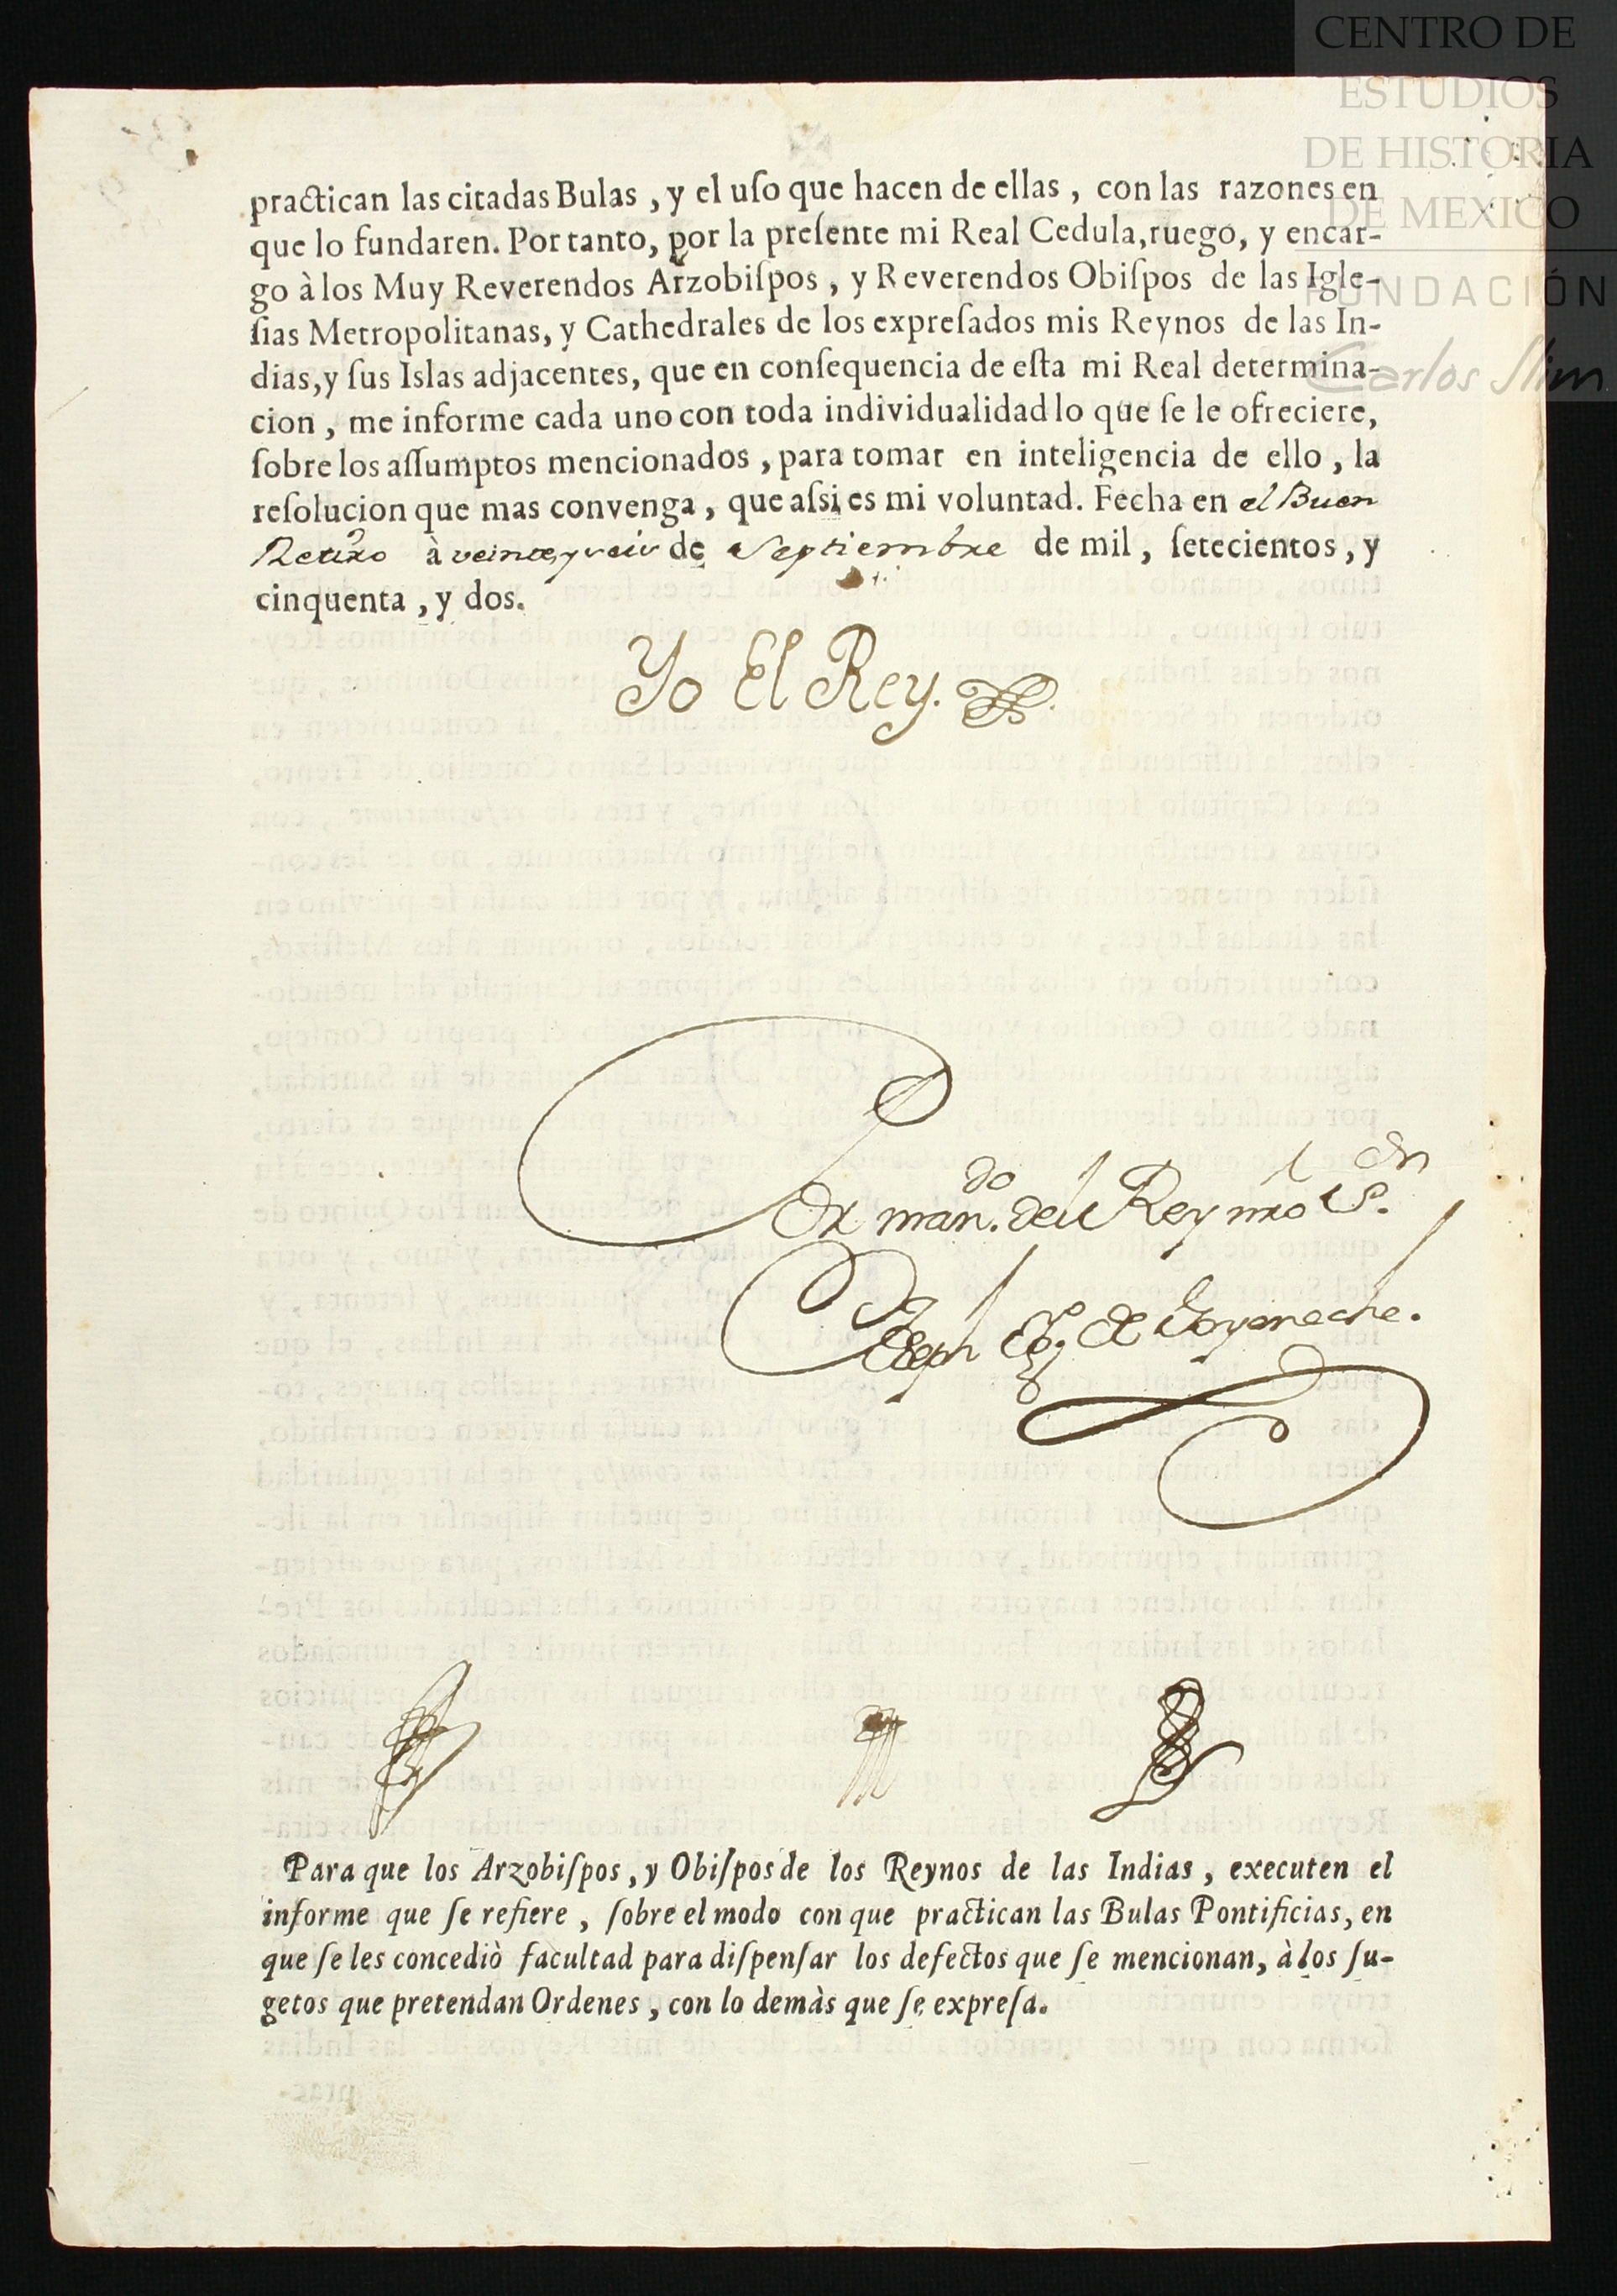 CENTRO DE
ESTUDIOS
DE HISTORIA
DE MEXICO
FUNDACIÓN
Carlos Slim
practican las citadas Bulas , y el uſo que hacen de ellas , con las razones en
que lo fundaren. Por tanto, por la preſente mi Real Cedula, ruego, y encar-
go à los Muy Reverendos Arzobiſpos , y Reverendos Obiſpos de las Igle-
ſias Metropolitanas, y Cathedrales de los expreſados mis Reynos de las In-
dias, y ſus Islas adjacentes, que en conſequencia de eſta mi Real determina-
cion , me informe cada uno con toda individualidad lo que ſe le ofreciere,
ſobre los aſſumptos mencionados , para tomar en inteligencia de ello , la
reſolucion que mas convenga , que aſsi es mi voluntad. Fecha en el Buen
Retiro à veinte, y seis de Septiembre de mil, ſetecientos, y
cinquenta , y dos.
Yo El Rey.
Por man.do del Rey nro S.or
Joseph de Goyeneche.
Para que los Arzobiſpos, y Obiſpos de los Reynos de las Indias, executen el
informe que ſe refiere , ſobre el modo con que practican las Bulas Pontificias, en
que ſe les concediò facultad para diſpenſar los defectos que ſe mencionan, à los ſu-
getos que pretendan Ordenes , con lo demàs que ſe expreſa.